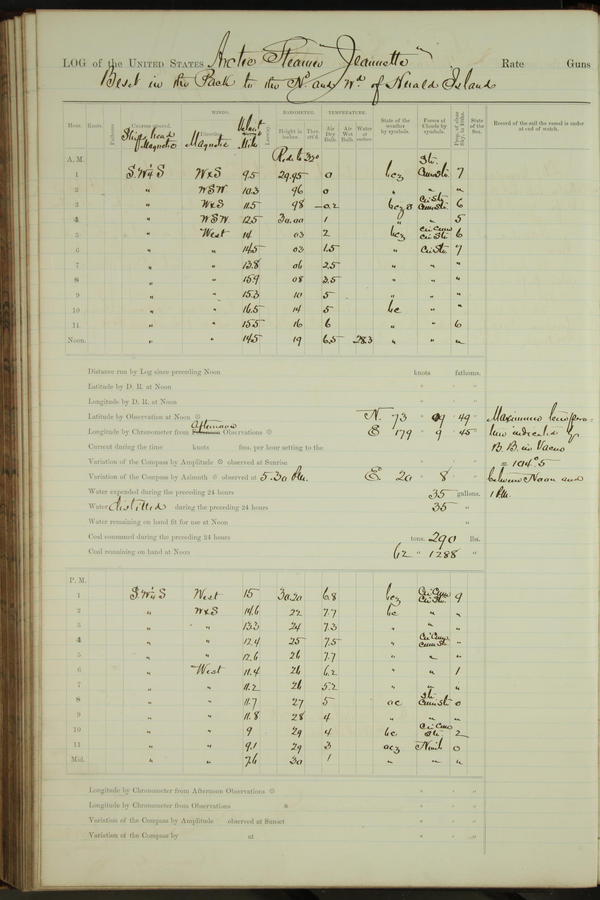 LOG of the UNITED STATES Arctic Steamer "Jeannette" Rate Guns
Beset in the Pack to the Nd and Wd of Herald Island
WINDS. BAROMETER. TEMPERATURE.
Hour. Knots. Fathoms. Courses steered. Ship's head Magnetic Direction. Magnetic Velocity Miles Leeway. Height in inches. Ther. att'd. Air Dry Bulb. Air Wet Bulb. Water at surface. State of the weather by symbols. Forms of Clouds by symbols. Prop. of clear sky, in 10ths. State of the Sea. Record of the sail the vessel is under at end of watch.
A. M. Red. to 32°
1 S.W¼S W&S 9.5 29.95 0 bcz Str. Cum Str. 7
2 " WSW 10.3 96 0 " " "
3 " W&S 11.5 98 -0.2 Cir Str. Cum Str. 6
4 " WSW 12.5 30.00 1 " " 5
5 " West 14 03 2 bcz Cir Cum Cir Str. 6
6 " " 14.5 03 1.5 " Cir Str. 7
7 " " 13.8 06 2.5 " " "
8 " " 15.9 08 3.5 " " "
9 " " 15.3 10 5 " " "
10 " " 16.5 14 5 bc " "
11 " " 15.5 16 6 " " 6
Noon. " " 14.5 19 6.5 28.3 " " "
Distance run by Log since preceding Noon knots fathoms.
Latitude by D. R. at Noon
Longitude by D. R. at Noon
Latitude by Observation at Noon N. 73 09 49
Longitude by Chronometer from Afternoon Observations E 179 9 45
Current during the time knots fms. per hour setting to the
Variation of the Compass by Amplitude observed at Sunrise
Variation of the Compass by Azimuth observed at 5.30 P.M. E 20 8
Water expended during the preceding 24 hours 35 gallons.
Water distilled during the preceding 24 hours 35 "
Water remaining on hand fit for use at Noon "
Coal consumed during the preceding 24 hours tons. 290 lbs.
Coal remaining on hand at Noon 62 " 1288 "
Maximum tempera-
ture indicated by
B. B. in Vacuo
= 104°.5
between Noon and
1 P.M.
P. M.
1 S.W¼S West 15 30.20 6.8 bcz Cir Cum Cir Str. 9
2 " W&S 14.6 22 7.7 bc " "
3 " " 13.3 24 7.3 " " "
4 " " 12.4 25 7.5 " Cir Cum Cum Str. "
5 " " 12.6 26 7.7 " " "
6 " West 11.4 26 6.2 " " 1
7 " " 11.2 26 5.2 " " "
8 " " 11.7 27 5 oc Str. Cum Str. 0
9 " " 11.8 28 4 " " "
10 " " 9 29 4 bc Cir Cum Str. 2
11 " " 9.1 29 3 ocz Nimb. 0
Mid. " " 7.6 30 1 " " "
Longitude by Chronometer from Afternoon Observations
Longitude by Chronometer from Observations
Variation of the Compass by Amplitude observed at Sunset
Variation of the Compass by at